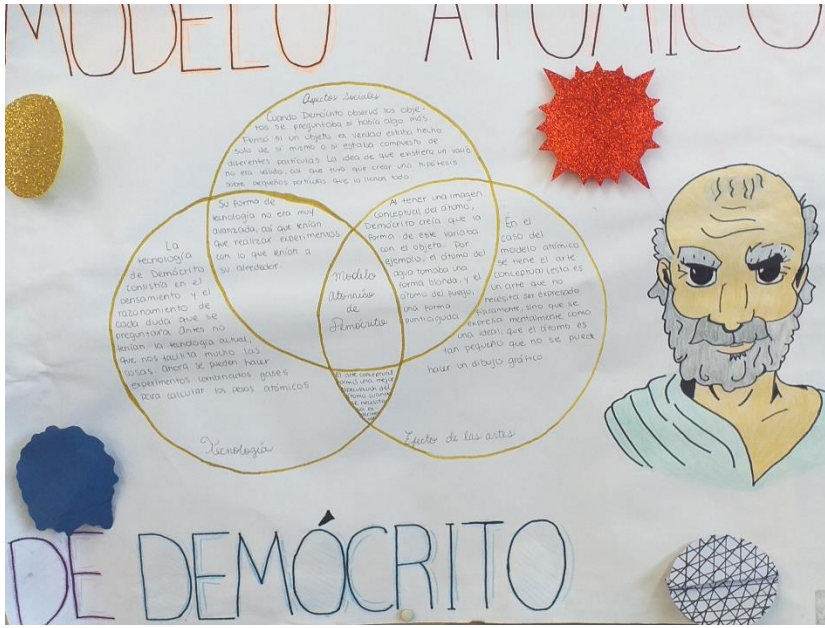 MODELO ATÓMICO
Aspectos Sociales
Cuando Demócrito observó los obje-
tos se preguntaba si había algo más.
Pensó si un objeto es verdad estaba hecho
solo de sí mismo o si estaba compuesto de
diferentes partículas. La idea de que existiera un vacío
no era válido, así que tuvo que crear una hipótesis
sobre pequeñas partículas que lo llenan todo.
Su forma de
tecnología no era muy
avanzada, así que tenían
que realizar experimentos
con lo que tenían a
su alrededor.
Al tener una imagen
conceptual del átomo,
Demócrito creía que la
forma de este variaba
con el objeto. Por
ejemplo, el átomo del
agua tomaba una
forma blanda, y el
átomo del fuego,
una forma
puntiaguda
La
tecnología
de Demócrito
consistía en el
pensamiento y el
razonamiento de
cada duda que se
preguntara. Antes no
tenían la tecnología actual,
que nos facilita mucho las
cosas. Ahora se pueden hacer
experimentos combinados gases
para calcular los pesos atómicos
Modelo
atómico
de
Demócrito
En el
caso del
modelo atómico
se tiene el arte
conceptual (esta es
un arte que no
necesita ser expresado
físicamente, sino que se
expresa mentalmente como
una idea), que el átomo es
tan pequeño que no se puede
hacer un dibujo gráfico
arte conceptual
una mejor
del
átomo cuando
se necesita
Tecnología
Efecto de las artes
DE DEMÓCRITO